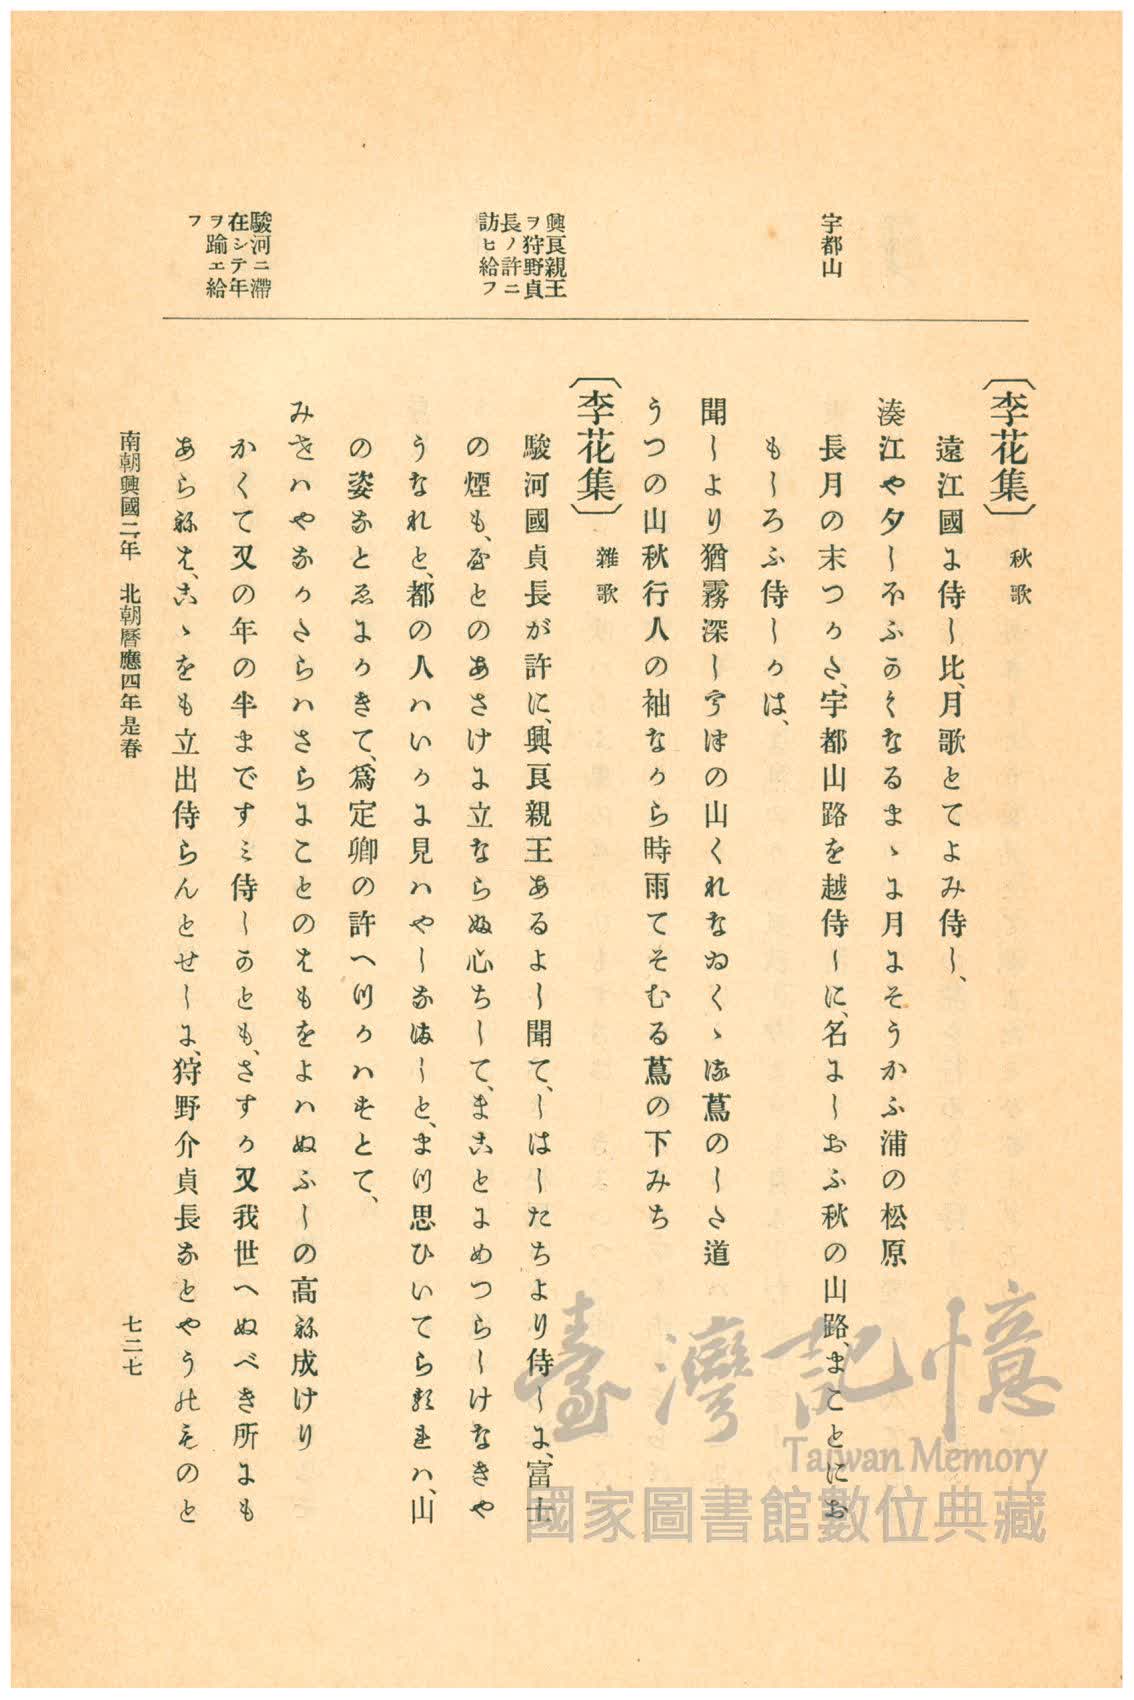 宇都山
興良親王
ヲ狩野貞
長ノ許ニ
訪ヒ給フ
駿河ニ滯
在シテ年
ヲ踰エ給
フ
〔李花集〕 秋歌
遠江國に侍し比、月歌とてよみ侍し、
湊江や夕しほふかくなるまゝに月にそうかふ浦の松原
長月の末つかた、宇都山路を越侍しに、名にしおふ秋の山路、まことにお
もしろふ侍しかは、
聞しより猶霧深しうつの山くれなゐくゝる蔦のした道
うつの山秋行人の袖なから時雨てそむる蔦の下みち
〔李花集〕 雜歌
駿河國貞長が許に、興良親王あるよし聞て、しはしたちより侍しに、富士
の煙も、やとのあさけに立ならぬ心ちして、まことにめつらしけなきや
うなれと、都の人ハいかに見ハやしなましと、まつ思ひいてらるれハ、山
の姿なとゑにかきて、爲定卿の許へつかハすとて、
みせハやなかたらハさらにことのはもをよハぬふしの高ね成けり
かくて又の年の半まですミ侍しかとも、さすか又我世へぬべき所にも
あらねは、こゝをも立出侍らんとせしに、狩野介貞長なとやうのものと
南朝興國二年 北朝曆應四年是春
七二七
臺灣記憶
Taiwan Memory
國家圖書館數位典藏